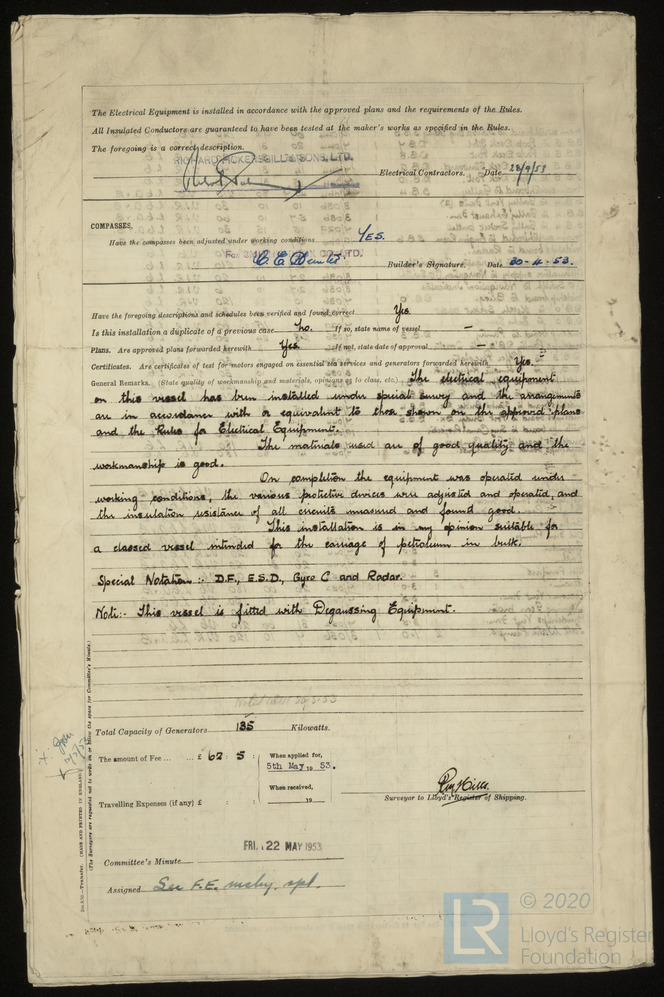 The Electrical Equipment is installed in accordance with the approved plans and the requirements of the Rules.
All Insulated Conductors are guaranteed to have been tested at the maker's works as specified in the Rules.
The foregoing is a correct description.
SONS, LTD.
Electrical Contractors. Date 28/9/53
COMPASSES.
Have the compasses been adjusted under working conditions YES.
For LTD.
Builder's Signature. Date 30-4-53.
Have the foregoing descriptions and schedules been verified and found correct Yes
Is this installation a duplicate of a previous case No. If so, state name of vessel —
Plans. Are approved plans forwarded herewith Yes If not, state date of approval —
Certificates. Are certificates of test for motors engaged on essential sea services and generators forwarded herewith Yes.
General Remarks. (State quality of workmanship and materials, opinions as to class, etc.) The electrical equipment
on this vessel has been installed under special survey and the arrangements
are in accordance with or equivalent to those shown on the approved plans
and the Rules for Electrical Equipment.
The materials used are of good quality and the
workmanship is good.
On completion the equipment was operated under
working conditions, the various protective devices were adjusted and operated, and
the insulation resistance of all circuits measured and found good.
This installation is in my opinion suitable for
a classed vessel intended for the carriage of petroleum in bulk.
Special Notation :- D.F., E.S.D., Gyro C and Radar.
Note:- This vessel is fitted with Degaussing Equipment.
Total Capacity of Generators 135 Kilowatts.
The amount of Fee ... £ 62 : 5 : When applied for,
5th May 19 53.
When received,
Travelling Expenses (if any) £ : : 19
Surveyor to Lloyd's Register of Shipping.
FRI. 22 MAY 1953
Committee's Minute
Assigned See F.E. mchy. rpt.
(MADE AND PRINTED IN ENGLAND)
(The Surveyors are requested not to write on or below the space for Committee's Minute.)
© 2020
LR
Lloyd's Register
Foundation